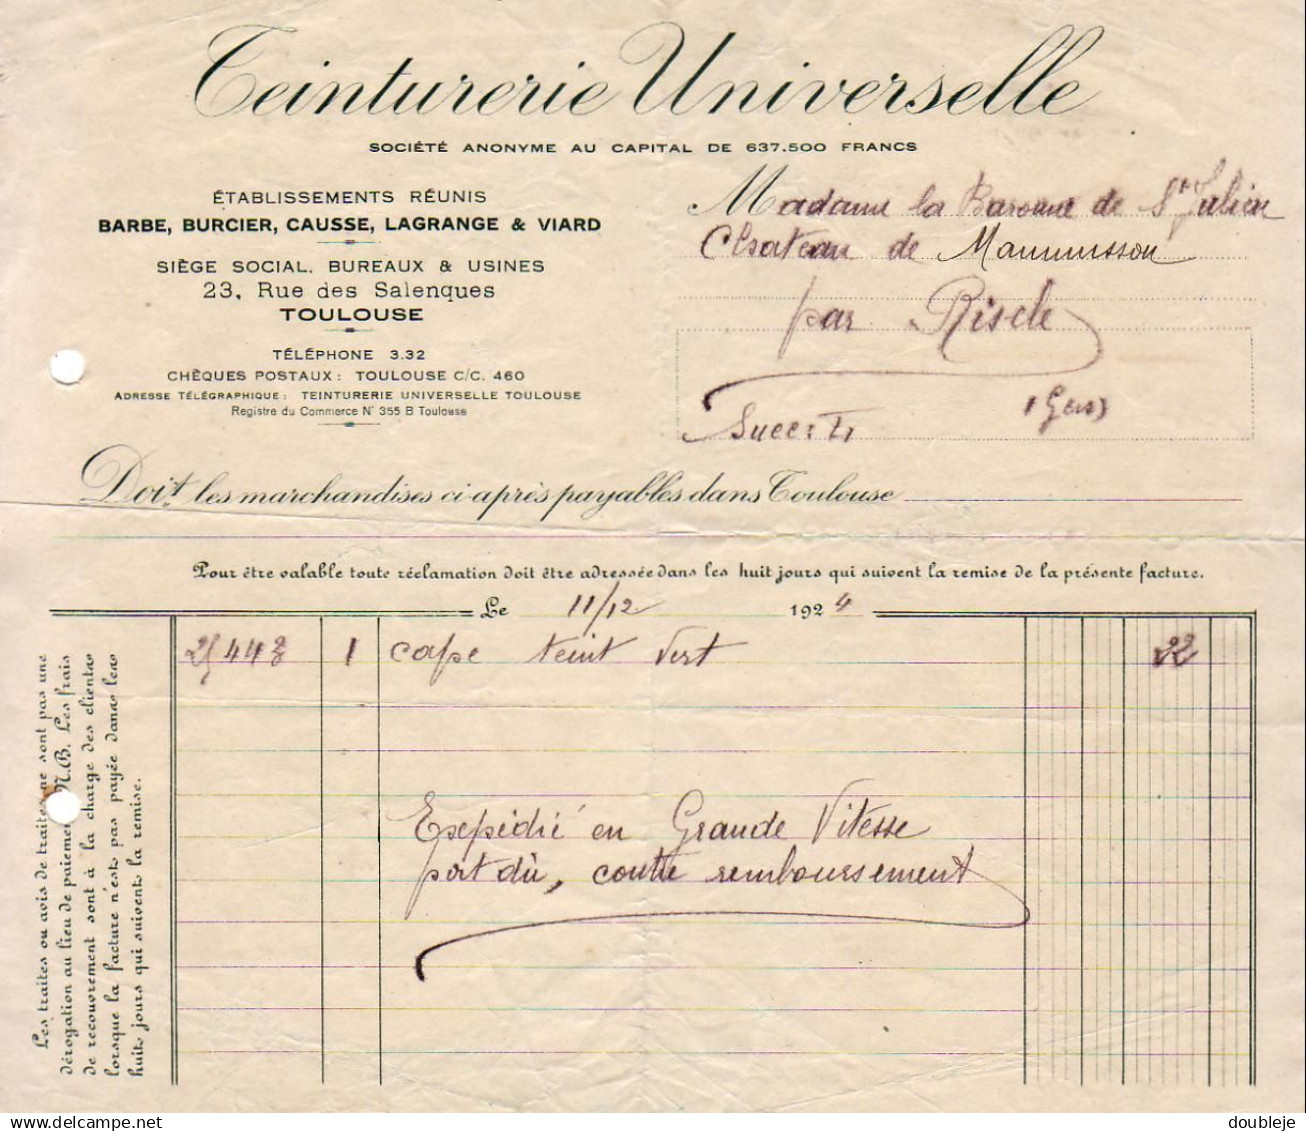 Teinturerie Universelle
SOCIÉTÉ ANONYME AU CAPITAL DE 637.500 FRANCS
ÉTABLISSEMENTS RÉUNIS
BARBE, BURCIER, CAUSSE, LAGRANGE & VIARD
SIÈGE SOCIAL, BUREAUX & USINES
23, Rue des Salenques
TOULOUSE
TÉLÉPHONE 3.32
CHÈQUES POSTAUX : TOULOUSE C/C. 460
ADRESSE TÉLÉGRAPHIQUE : TEINTURERIE UNIVERSELLE TOULOUSE
Registre du Commerce N° 355 B Toulouse
Madame la Baronne de St Julien
Château de Maumusson
par Riscle
(Gers)
Doit les marchandises ci-après payables dans Toulouse
Pour être valable toute réclamation doit être adressée dans les huit jours qui suivent la remise de la présente facture.
Le 11/12 1924
25443 1 cape teint vert 22
Expédié en Grande Vitesse
port dû, contre remboursement
Les traites ou avis de traites ne sont pas une
dérogation au lieu de paiement N.B. Les frais
de recouvrement sont à la charge des clients
lorsque la facture n'est pas payée dans les
huit jours qui suivent la remise.
doubleje